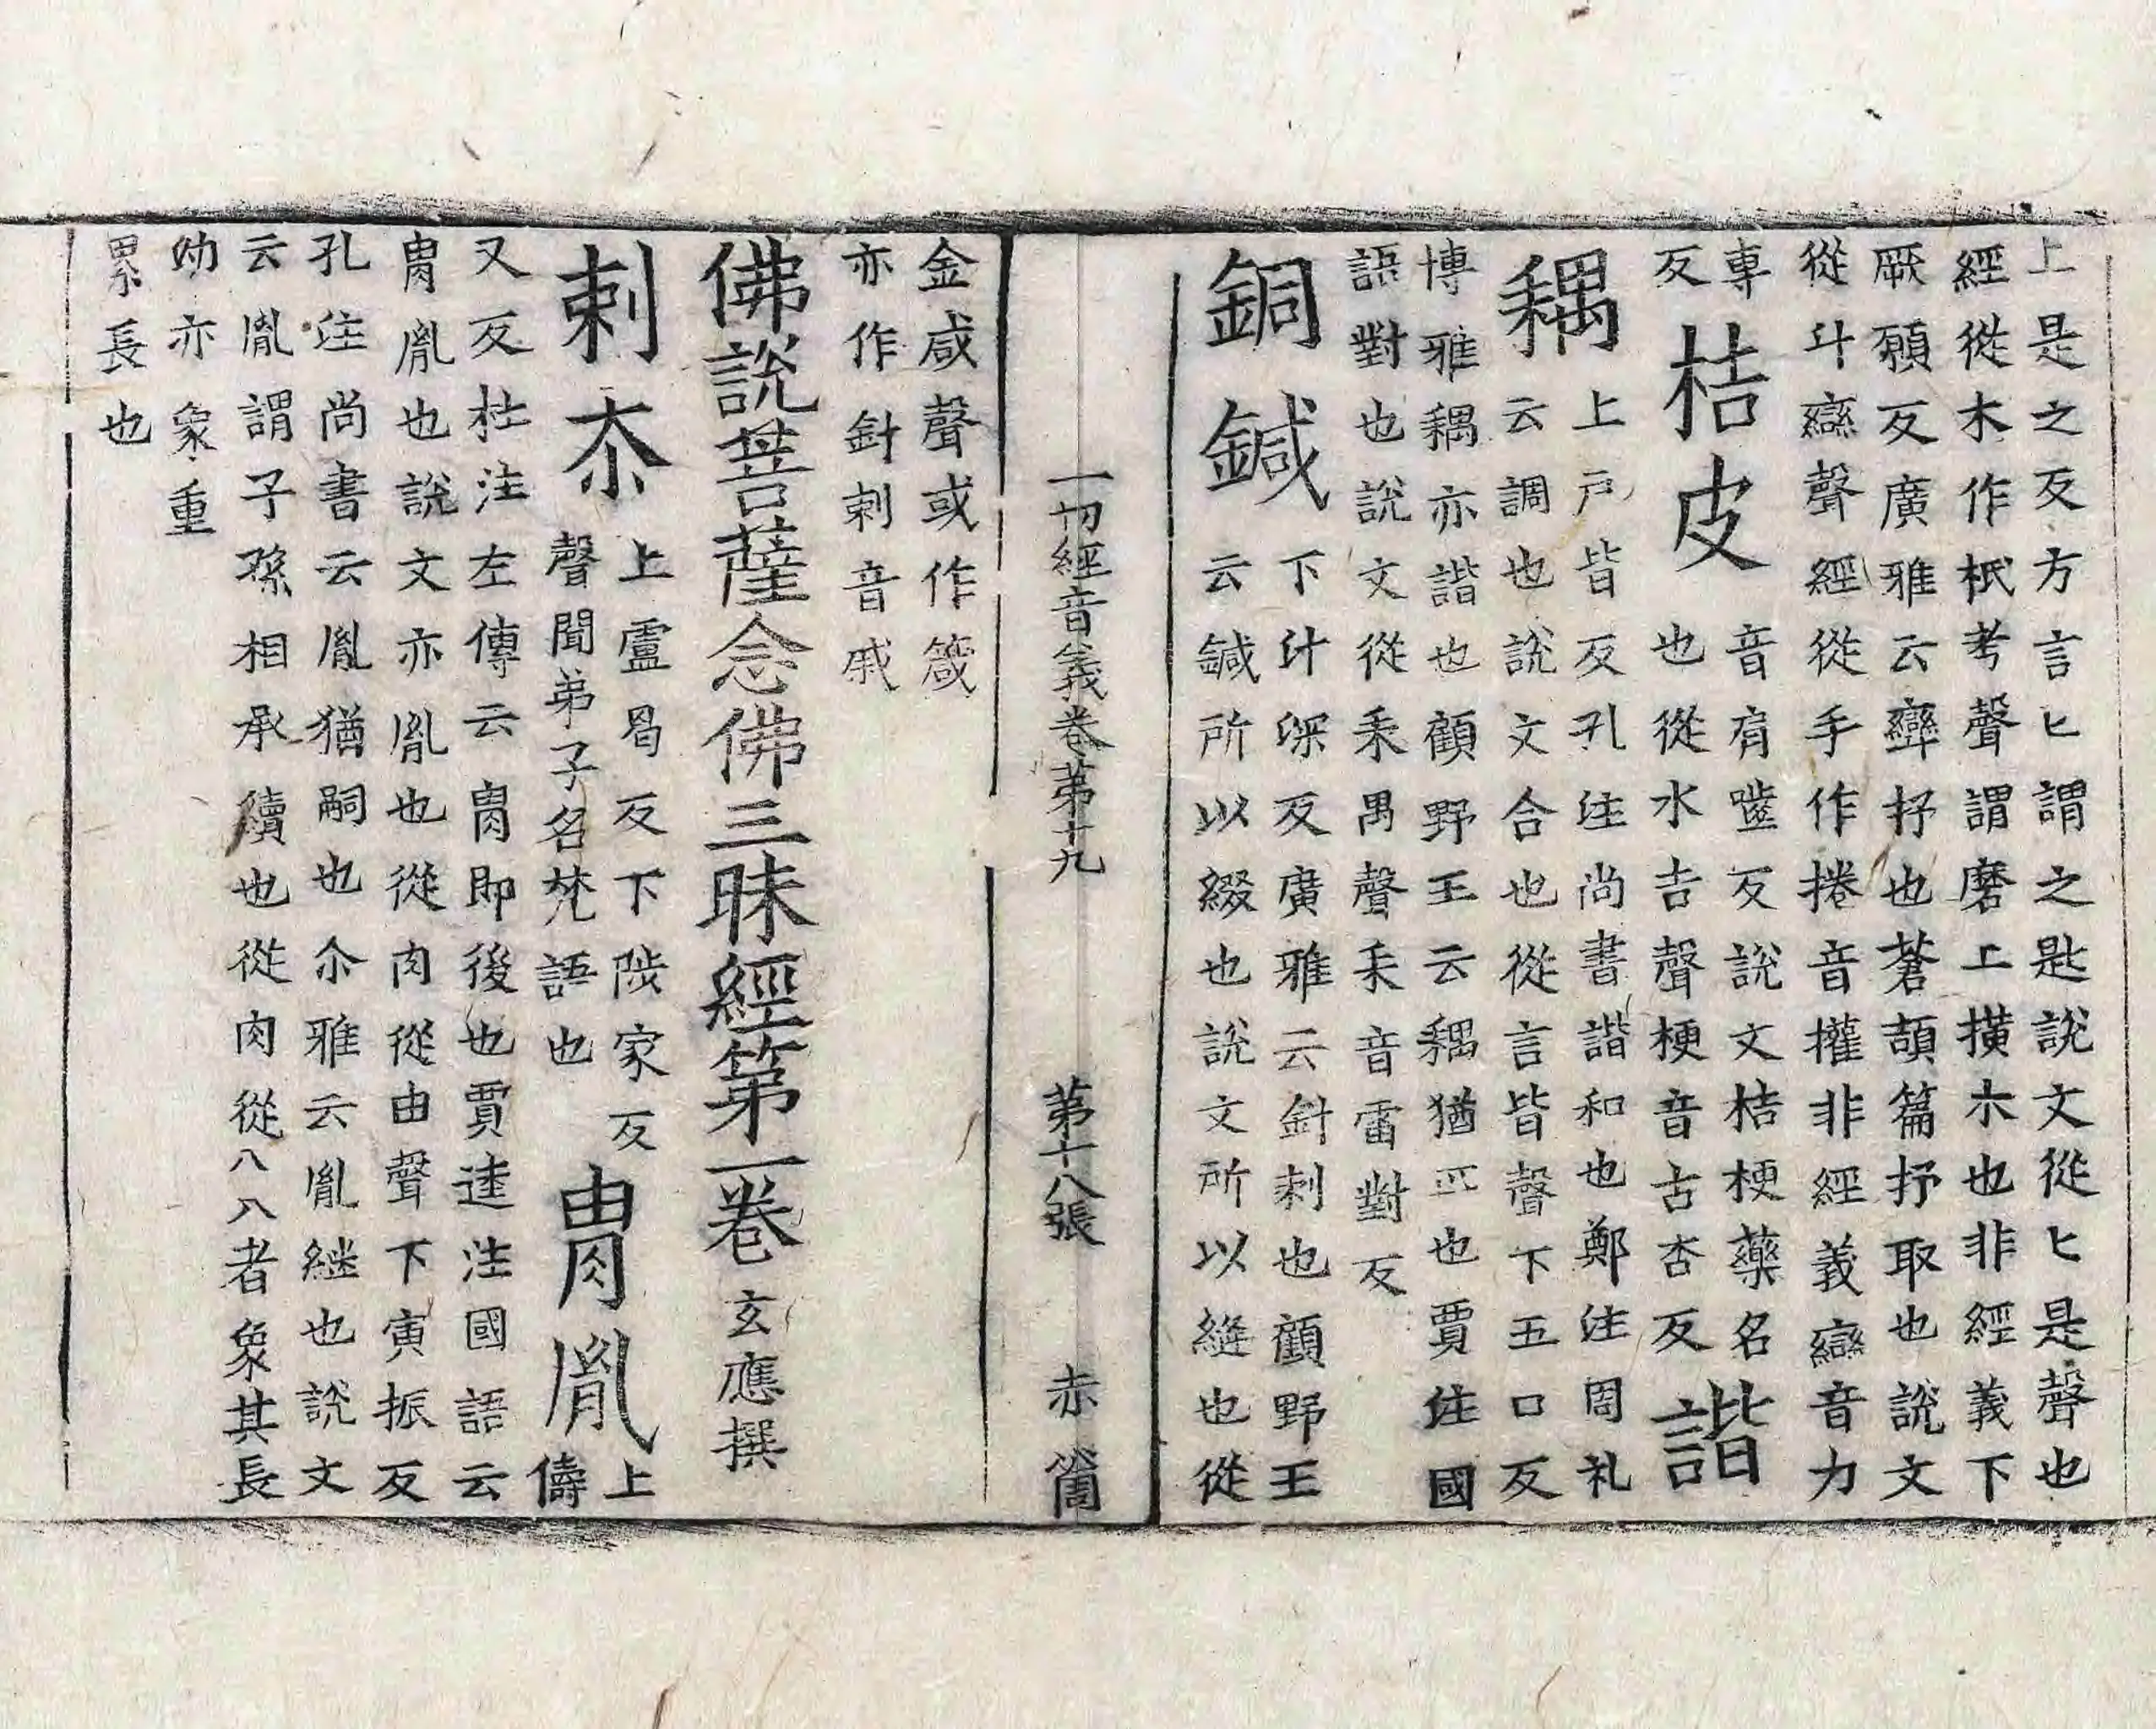 上是之反方言匕謂之匙說文從匕是聲也
經從木作柢考聲謂磨上撗木也非經義下
厥願反廣雅云㪻抒也蒼頡篇抒取也說文
從斗䜌聲經從手作捲音攉非經義䜌音力
專反
桔皮
音有嗞反說文桔梗藥名
也從水吉聲梗音古杏反
諧
耦
上戸皆反孔注尚書諧和也鄭注周礼
云調也說文合也從言皆聲下五口反
博雅耦亦諧也顧野王云耦猶匹也賈注國
語對也說文從耒禺聲耒音雷對反
銅鍼
下汁深反廣雅云針刺也顧野王
云鍼所以綴也說文所以縫也從
一切經音義卷第十九 第十八張 赤 䈪
金咸聲或作箴
亦作針刺音戚
佛說菩薩念佛三昧經第一卷 玄應撰
剌奈
上盧曷反下陟家反
聲聞弟子名梵語也
胄胤
上儔
又反杜注左傳云胄即後也賈逵注國語云
胄胤也說文亦胤也從肉從由聲下寅振反
孔注尚書云胤猶嗣也尒雅云胤継也說文
云胤謂子孫相承續也從肉從八八者象其長
㓜亦象重
累長也